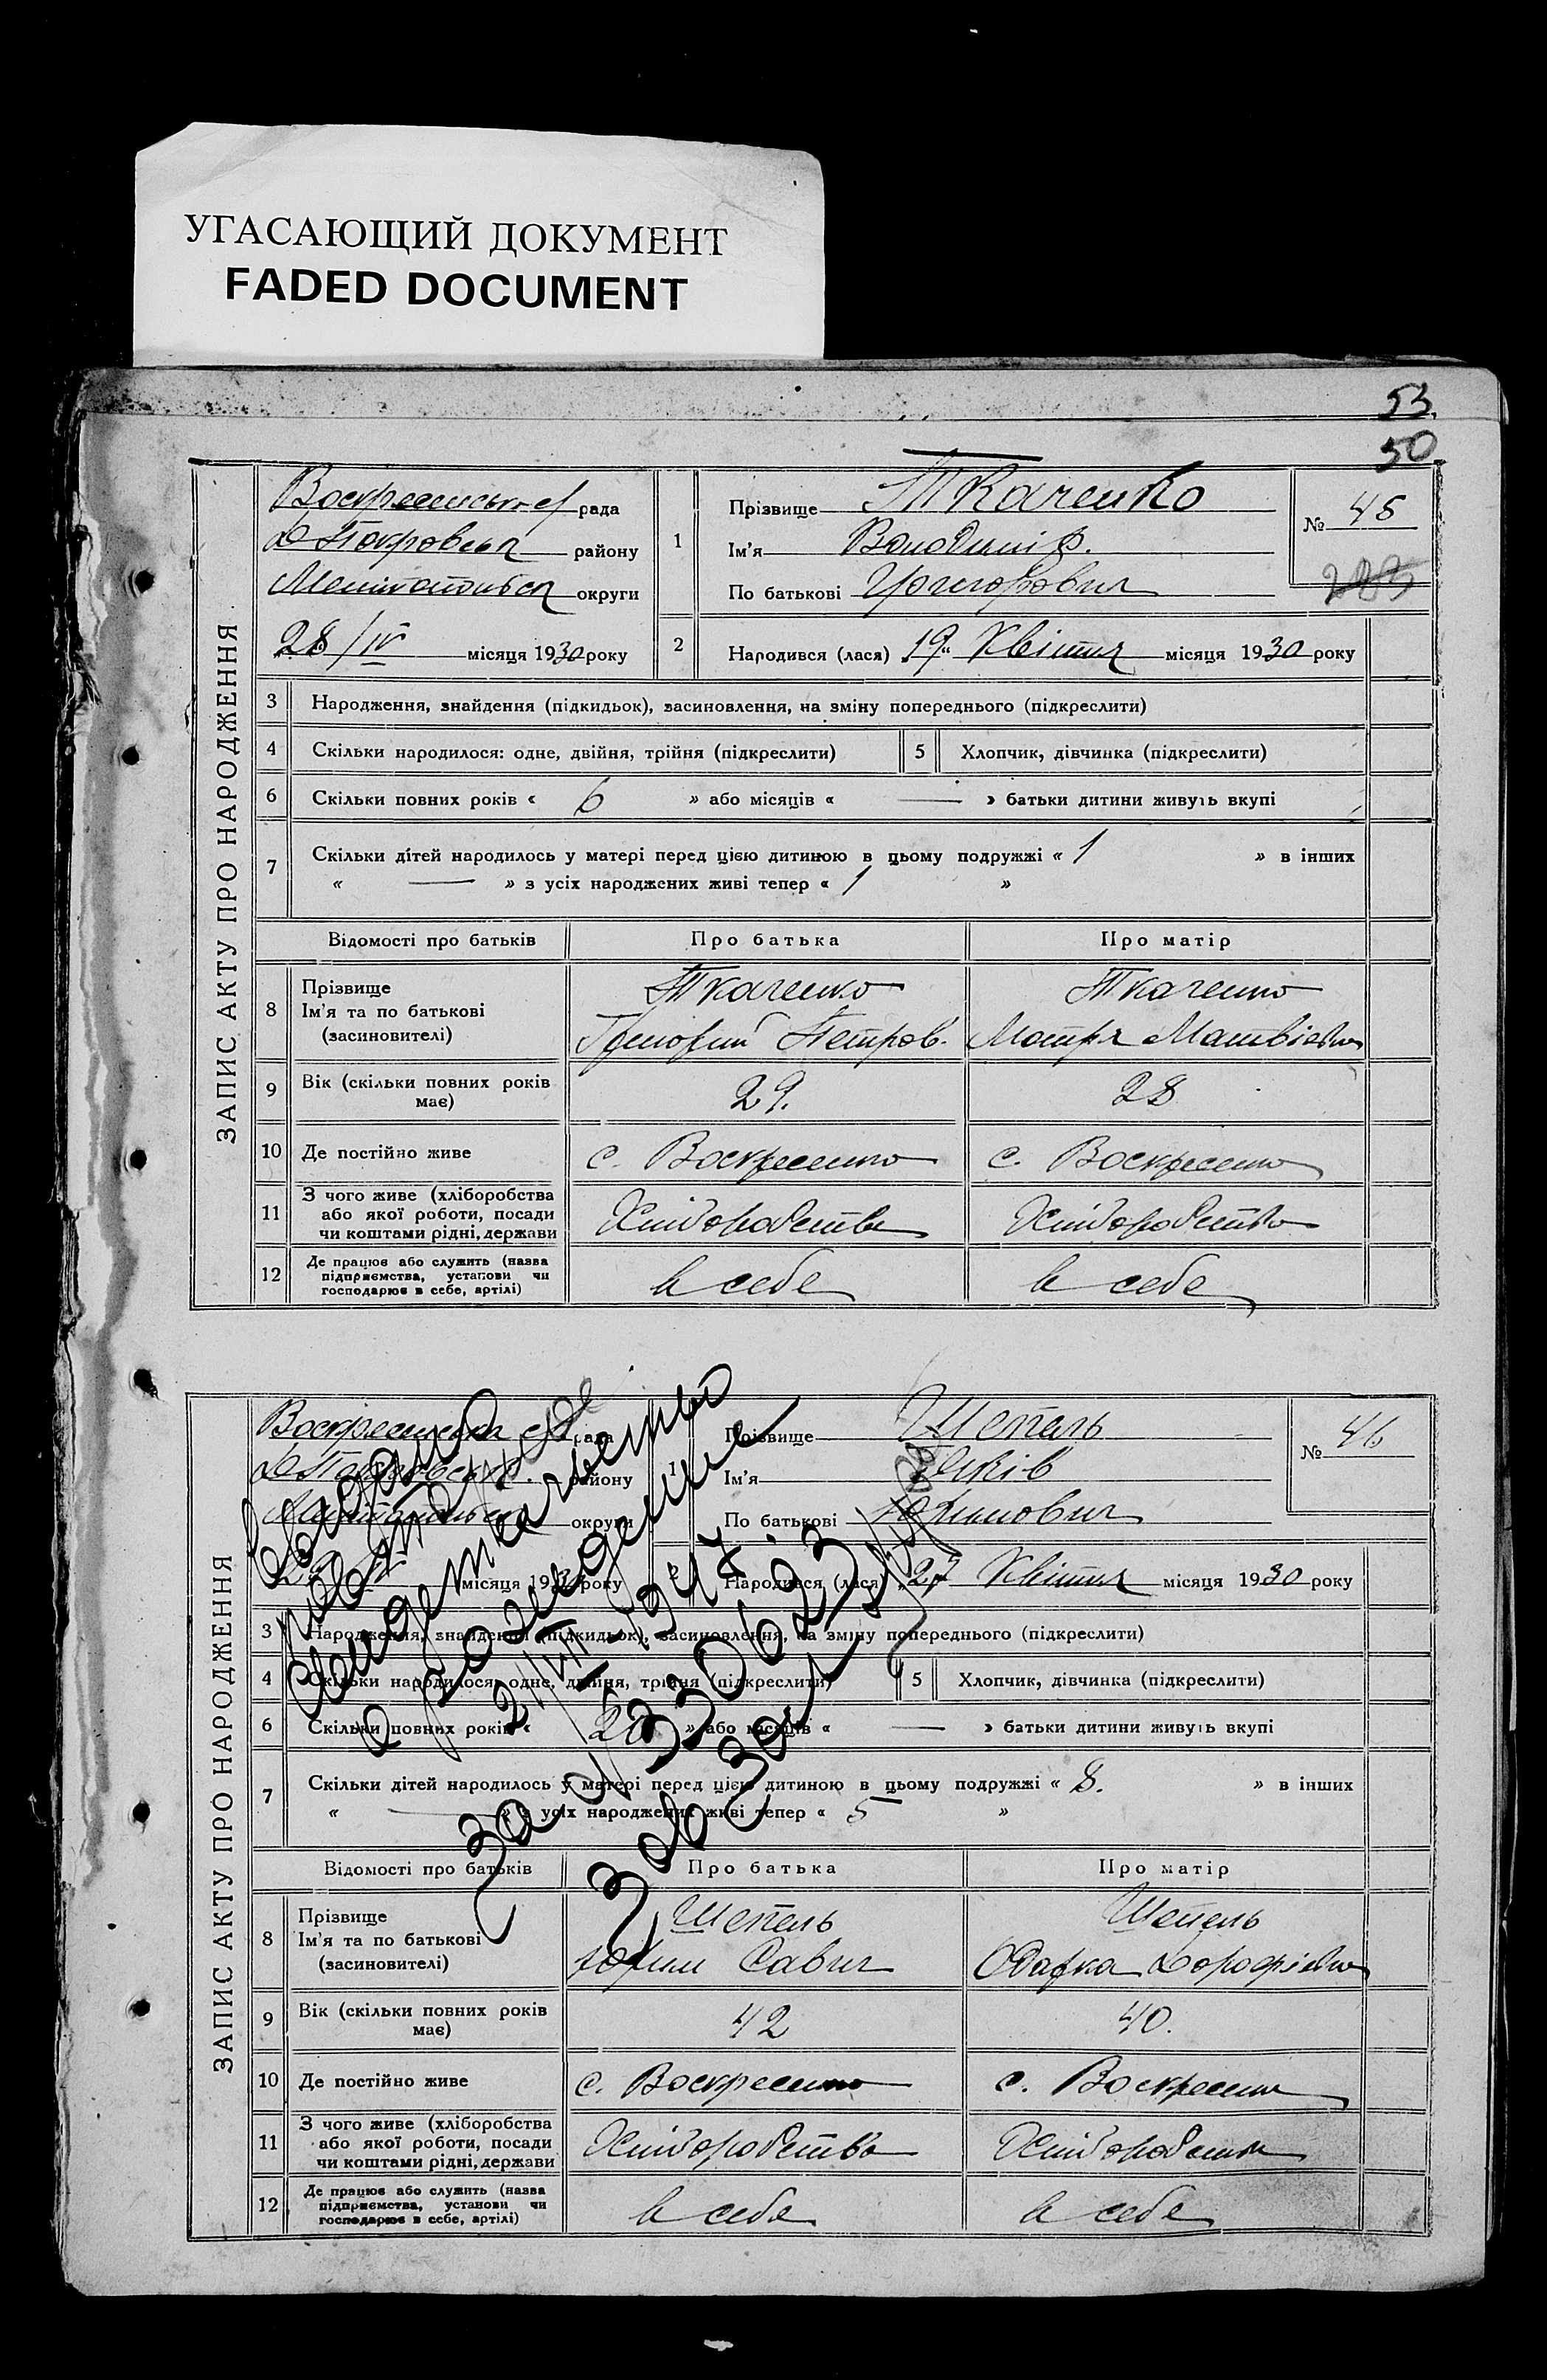 УГАСАЮЩИЙ ДОКУМЕНТ
FADED DOCUMENT
53.
50
ЗАПИС АКТУ ПРО НАРОДЖЕННЯ
рада
району
округи
28/IV місяця 1930 року
1
Прізвище Ткаченко
Ім'я
По батькові Григорович
№ 45
2 Народився (лася) „19" Квітня місяця 1930 року
3 Народження, знайдення (підкидьок), засиновлення, на зміну попереднього (підкреслити)
4 Скільки народилося: одне, двійня, трійня (підкреслити) 5 Хлопчик, дівчинка (підкреслити)
6 Скільки повних років « 6 » або місяців « — » батьки дитини живуть вкупі
7 Скільки дітей народилось у матері перед цією дитиною в цьому подружжі « 1 » в інших
« — » з усіх народжених живі тепер « 1 »
Відомості про батьків Про батька Про матір
8 Прізвище Ткаченко Ткаченко
Ім'я та по батькові Григорий Петров. Мотря Матвіевна
(засиновителі)
9 Вік (скільки повних років має) 29. 28
10 Де постійно живе с. Воскресенка с. Воскресенка
11 З чого живе (хліборобства
або якої роботи, посади Хліборобство Хліборобство
чи коштами рідні, держави
12 Де працює або служить (назва
підприємства, установи чи в себе в себе
господарює в себе, артілі)
ЗАПИС АКТУ ПРО НАРОДЖЕННЯ
рада
району
округи
місяця 1930 року
1
Прізвище Шепель
Ім'я Яків
По батькові Юхимович
№ 46
2 Народився (лася) „27 Квітня місяця 1930 року
3 Народження, знайдення (підкидьок), засиновлення, на зміну попереднього (підкреслити)
4 Скільки народилося: одне, двійня, трійня (підкреслити) 5 Хлопчик, дівчинка (підкреслити)
6 Скільки повних років « 20 » або місяців « — » батьки дитини живуть вкупі
7 Скільки дітей народилось у матері перед цією дитиною в цьому подружжі « 8. » в інших
« — » з усіх народжених живі тепер « 5 »
Відомості про батьків Про батька Про матір
8 Прізвище Шепель Шепель
Ім'я та по батькові Юхим Савич Одарка Дорофіевна
(засиновителі)
9 Вік (скільки повних років має) 42 40.
10 Де постійно живе с. Воскресенка с. Воскресенка
11 З чого живе (хліборобства
або якої роботи, посади Хліборобство Хліборобство
чи коштами рідні, держави
12 Де працює або служить (назва
підприємства, установи чи в себе в себе
господарює в себе, артілі)
Свидетельство
о рождении
1947